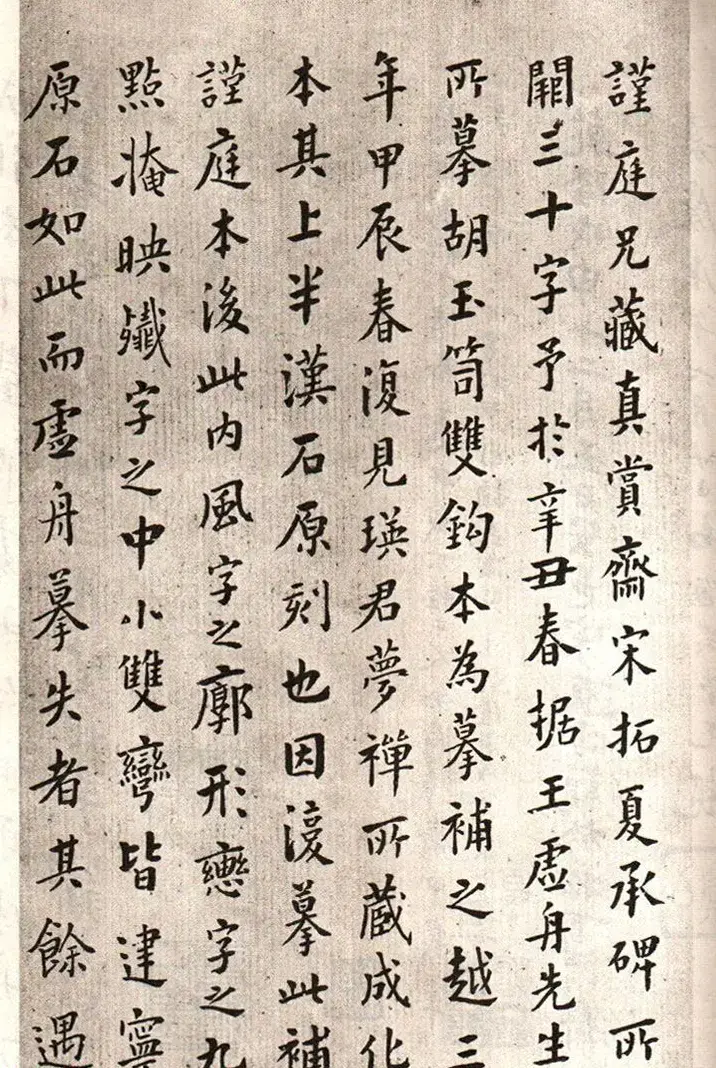 謹庭兄藏真賞齋宋拓夏承碑所
闕三十字予於辛丑春据王虛舟先生
所摹胡玉笥雙鈎本為摹補之越三
年甲辰春復見瑛君夢禪所藏成化
本其上半漢石原刻也因復摹此補
謹庭本後此內風字之廓形戀字之九
點掩映殲字之中小雙彎皆建寧
原石如此而虛舟摹失者其餘遇